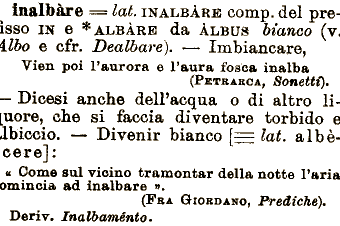 inalbàre = lat. INALBÀRE comp. del pre-
fisso IN e *ALBÀRE da ÀLBUS bianco (v.
Albo e cfr. Dealbare). — Imbiancare,
Vien poi l'aurora e l'aura fosca inalba
(PETRARCA, Sonetti).
— Dicesi anche dell'acqua o di altro li-
quore, che si faccia diventare torbido e
albiccio. — Divenir bianco [== lat. albè-
scere]:
« Come sul vicino tramontar della notte l'aria
comincia ad inalbare ».
(FRA GIORDANO, Prediche).
Deriv. Inalbaménto.